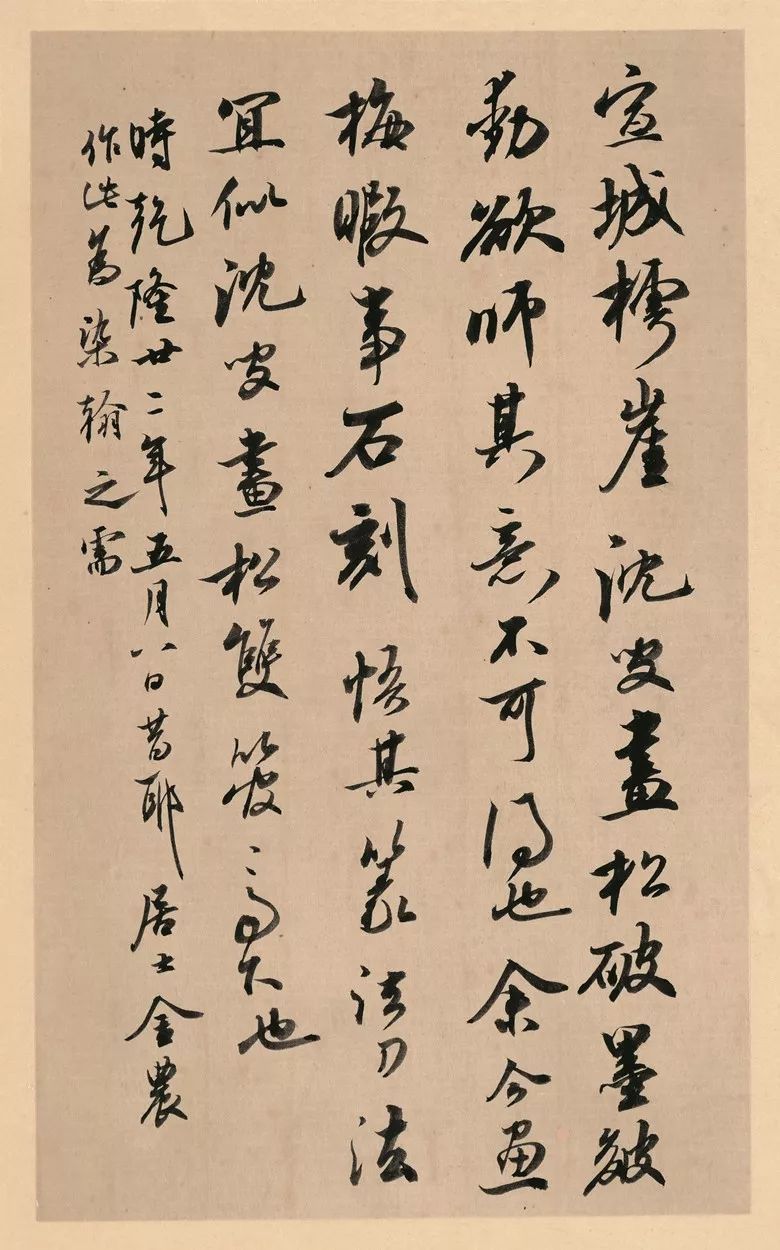 宣城樗崖沈叟畫松破墨皴
勁欲師其意不可得也余今畫
梅暇事石刻悟其篆法刀法
宜似沈叟畫松雙之高下也
時乾隆廿二年五月八日昔耶居士金農
作此為染翰之需